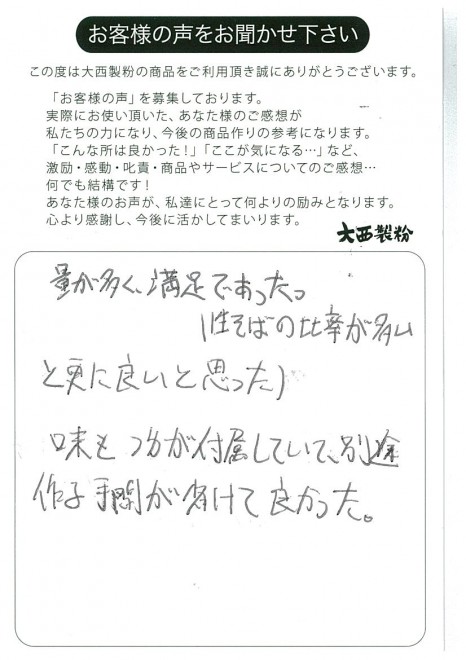 お客様の声をお聞かせ下さい
この度は大西製粉の商品をご利用頂き誠にありがとうございます。
「お客様の声」を募集しております。
実際にお使い頂いた、あなた様のご感想が
私たちの力になり、今後の商品作りの参考になります。
「こんな所は良かった！」「ここが気になる…」など、
激励・感動・叱責・商品やサービスについてのご感想…
何でも結構です！
あなた様のお声が、私達にとって何よりの励みとなります。
心より感謝し、今後に活かしてまいります。
大西製粉
量が多く、満足であった。
そばの比率が多い
と更に良いと思った)
味も が付属していて、別途
作る手間が省けて良かった。